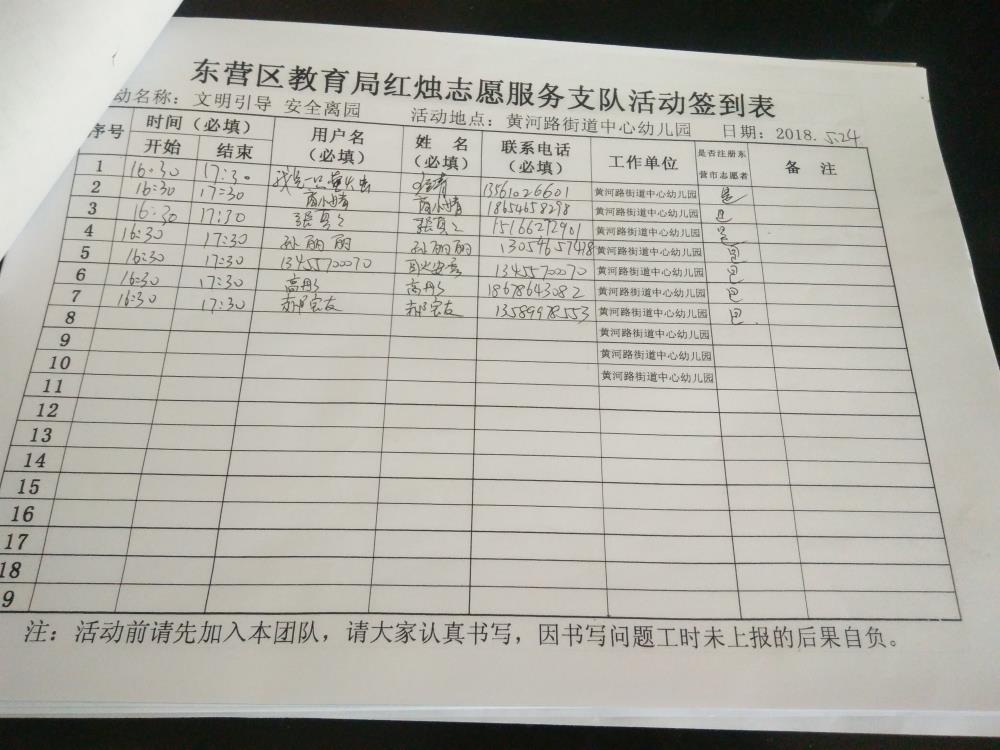 东营区教育局红烛志愿服务支队活动签到表
动名称：文明引导 安全离园 活动地点：黄河路街道中心幼儿园 日期：2018.5.24
序号 时间（必填） 用户名（必填） 姓 名（必填） 联系电话（必填） 工作单位 是否注册东营市志愿者 备 注
开始 结束
1 16:30 17:30 13561026601 黄河路街道中心幼儿园 是
2 16:30 17:30 18654658298 黄河路街道中心幼儿园 是
3 16:30 17:30 张真之 张真之 15166272901 黄河路街道中心幼儿园 是
4 16:30 17:30 孙丽丽 孙丽丽 13054657478 黄河路街道中心幼儿园 是
5 16:30 17:30 13455700070 13455700070 黄河路街道中心幼儿园 是
6 16:30 17:30 高彤 高彤 18678643082 黄河路街道中心幼儿园 是
7 16:30 17:30 郝宝友 郝宝友 13589978553 黄河路街道中心幼儿园 是
8 黄河路街道中心幼儿园
9 黄河路街道中心幼儿园
10 黄河路街道中心幼儿园
11
12
13
14
15
16
17
18
9
注：活动前请先加入本团队，请大家认真书写，因书写问题工时未上报的后果自负。